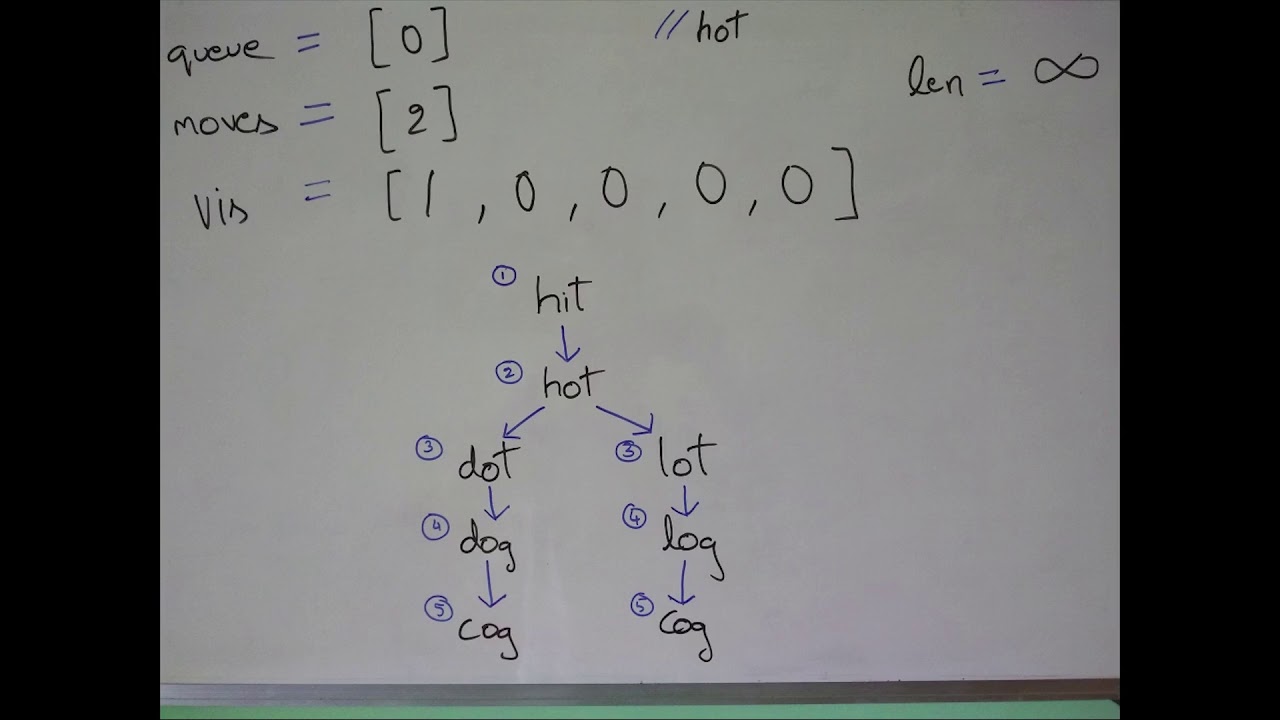 queue = [0] // hot
len = ∞
moves = [2]
vis = [1, 0, 0, 0, 0]
① hit
② hot
③ dot ③ lot
④ dog ④ log
⑤ cog ⑤ cog